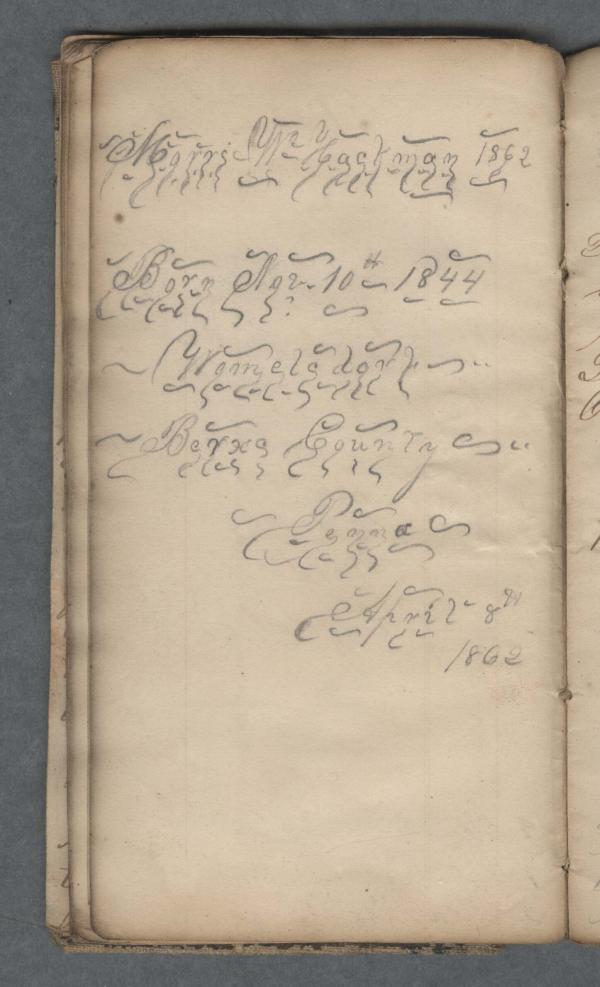 Morris W. Hackman 1862
Born Nov. 10th 1844
Womelsdorf
Berxs County
Penna
April 8th
1862